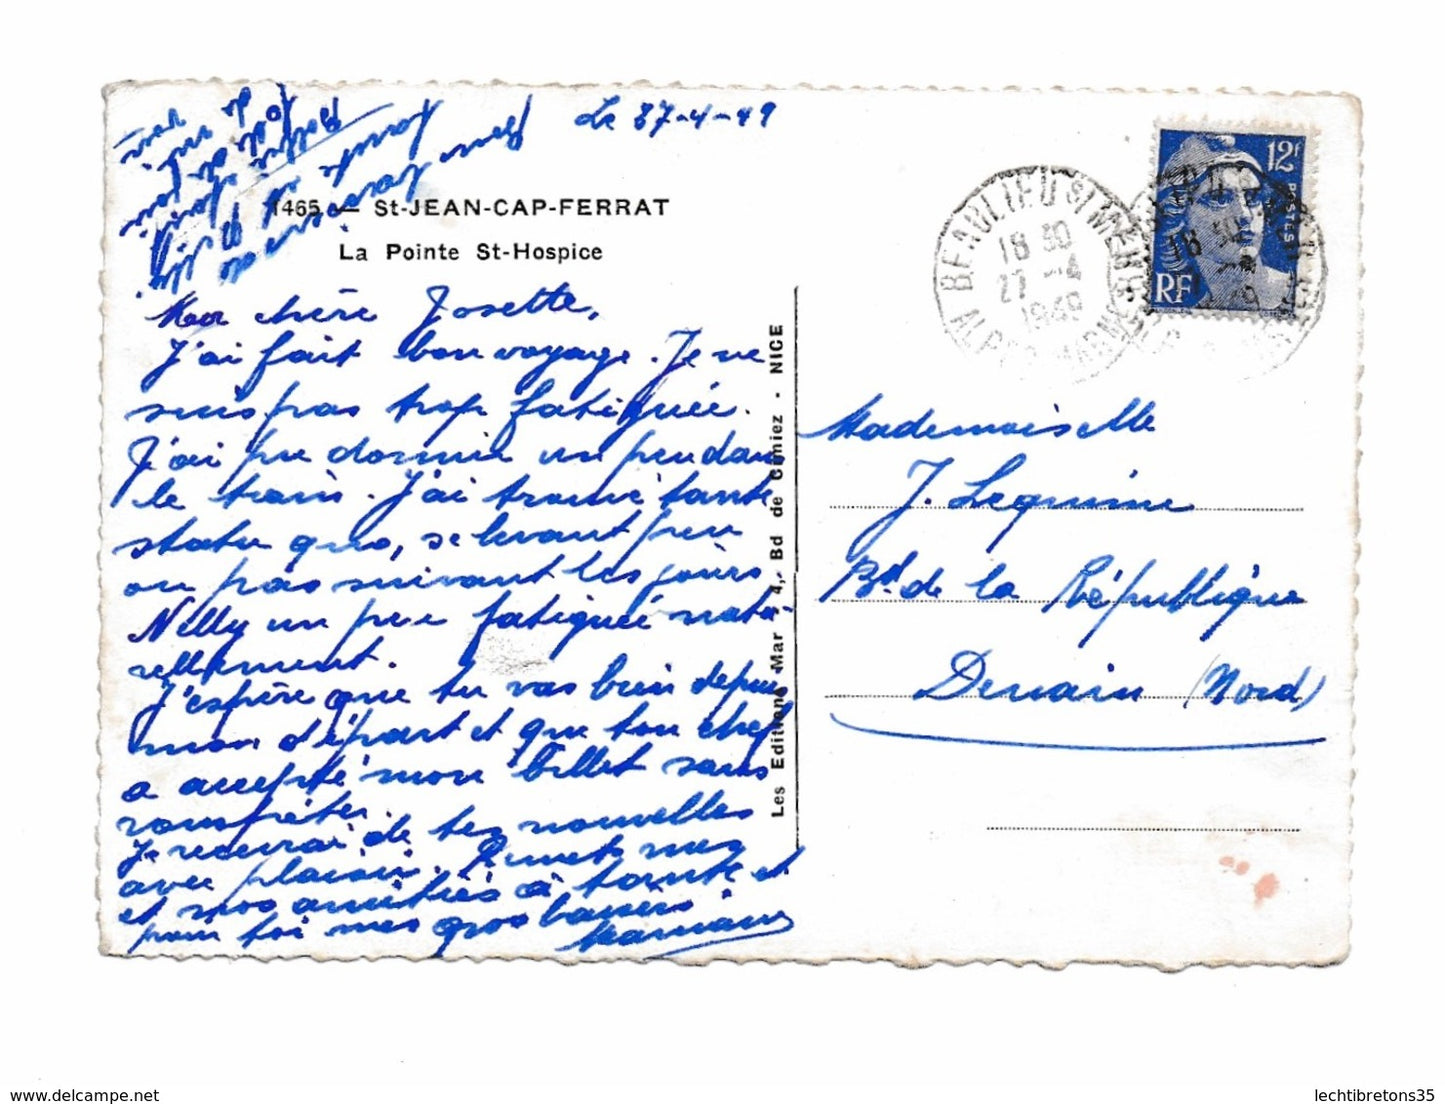 Le 27-4-49
1465 — St-JEAN-CAP-FERRAT
La Pointe St-Hospice
Ma chère Josette,
J'ai fait bon voyage. Je ne
suis pas trop fatiguée.
J'ai pu dormir un peu dans
le train. J'ai trouvé tante
statu quo, se levant peu
ou pas suivant les jours
Nelly un peu fatiguée natu-
rellement.
J'espère que tu vas bien depuis
mon départ et que ton chef
a accepté mon billet sans
rouspéter.
Je recevrai de tes nouvelles
avec plaisir.
et nos amitiés à tante et
pour toi mes gros baisers.
Maman
Les Editions Mar - 4, Bd de Cimiez - NICE
BEAULIEU S/ MER
18 30
27 - 4
1949
ALPES MARMES
12F
POSTES
RF
Mademoiselle
J. Lequime
Bd. de la République
Denain (Nord)
lechtibretons35